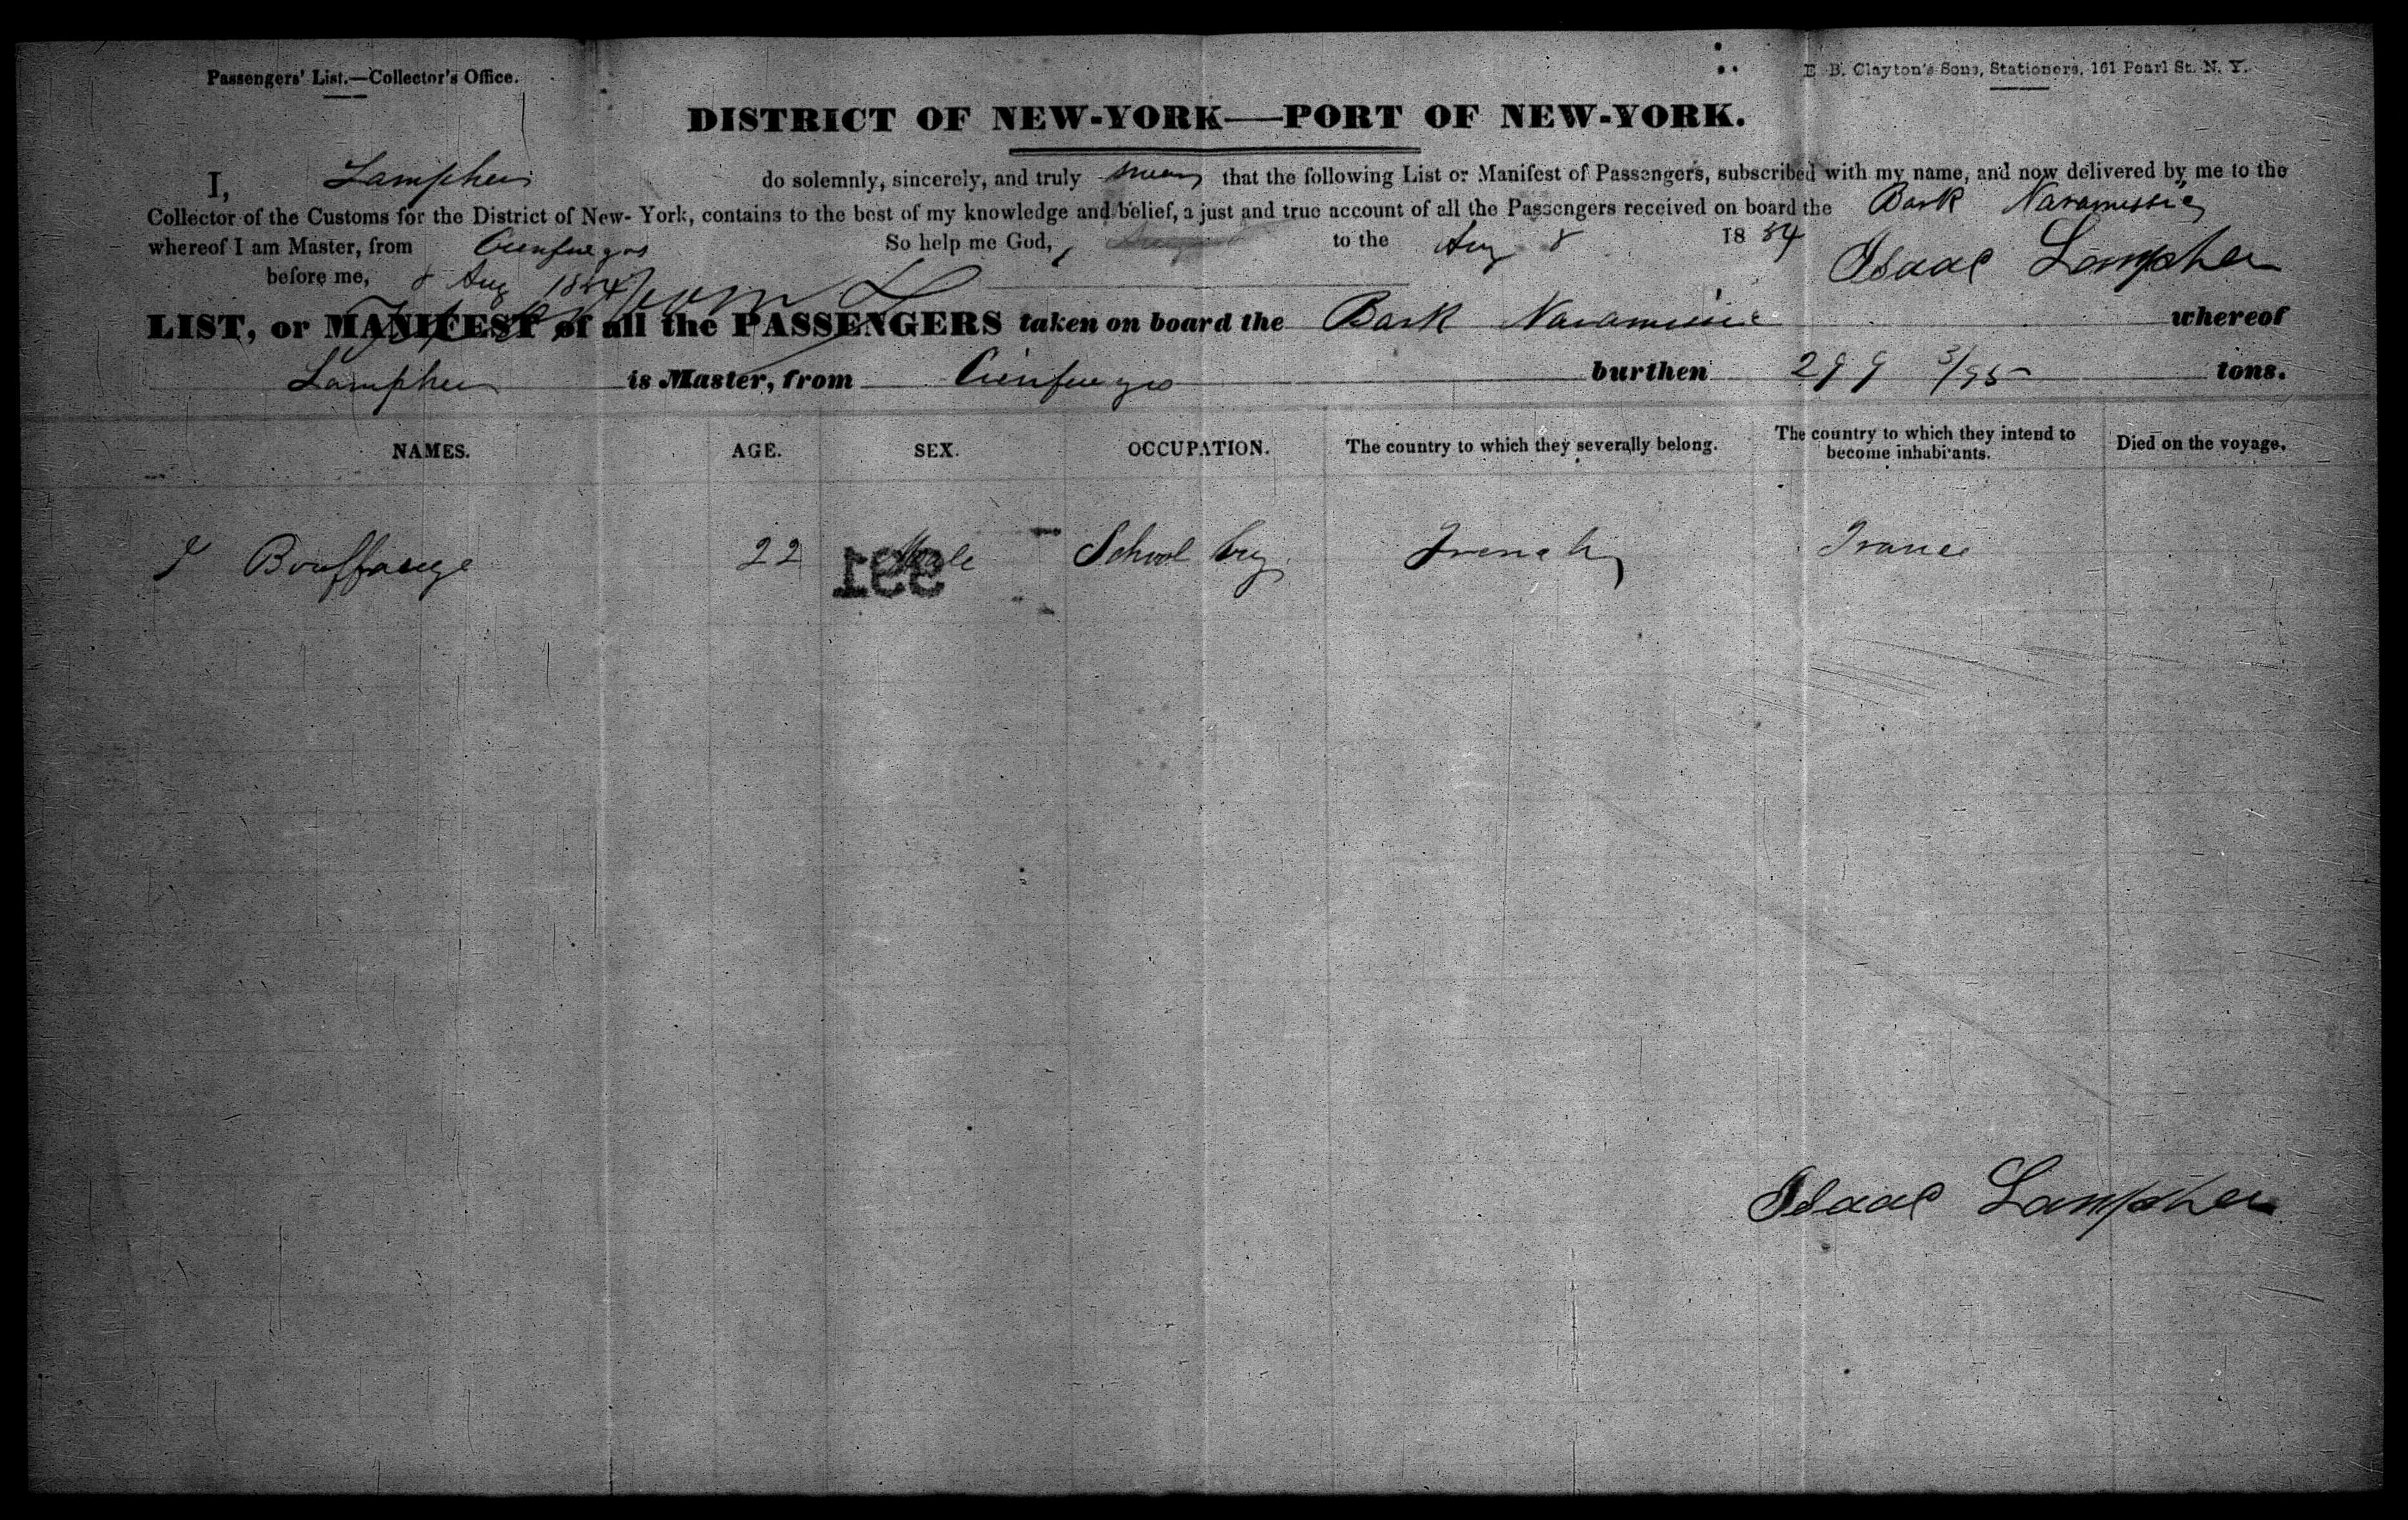 Passengers' List.—Collector's Office.
E. B. Clayton's Sons, Stationers, 161 Pearl St. N. Y.
DISTRICT OF NEW-YORK—PORT OF NEW-YORK.
I, Lampher do solemnly, sincerely, and truly swear that the following List or Manifest of Passengers, subscribed with my name, and now delivered by me to the
Collector of the Customs for the District of New-York, contains to the best of my knowledge and belief, a just and true account of all the Passengers received on board the Bark Naramissic
whereof I am Master, from Cienfuegos So help me God, to the Aug 8 1854
before me, 8 Aug 1854 Isaac Lampher
LIST, or MANIFEST of all the PASSENGERS taken on board the Bark Naramissic whereof
Lampher is Master, from Cienfuegos burthen 299 3/95 tons.
NAMES. AGE. SEX. OCCUPATION. The country to which they severally belong. The country to which they intend to become inhabitants. Died on the voyage.
Bouffauge 22 Male School boy French France
199
Isaac Lampher